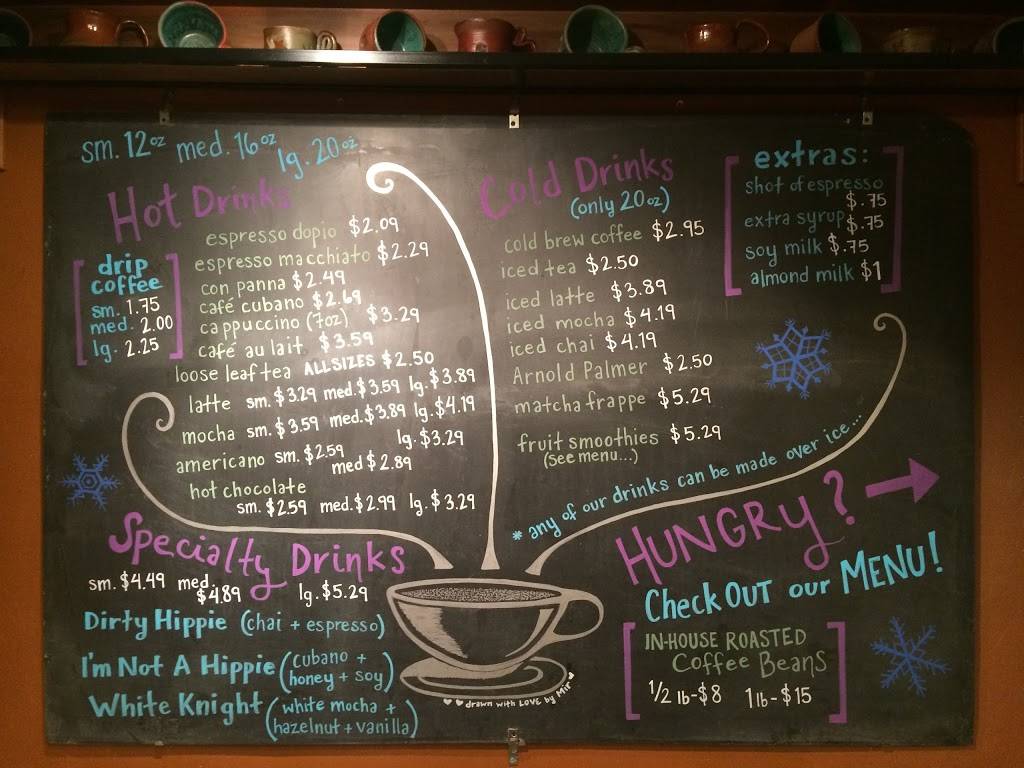 sm. 12oz med. 16oz lg. 20oz
Hot Drinks
drip
coffee
sm. 1.75
med. 2.00
lg. 2.25
espresso dopio $2.09
espresso macchiato $2.29
con panna $2.49
café cubano $2.69
cappuccino (7oz) $3.29
café au lait $3.59
loose leaf tea ALL SIZES $2.50
latte sm. $3.29 med. $3.59 lg. $3.89
mocha sm. $3.59 med. $3.89 lg. $4.19
americano sm. $2.59 med $2.89 lg. $3.29
hot chocolate
sm. $2.59 med. $2.99 lg. $3.29
Specialty Drinks
sm. $4.49 med. $4.89 lg. $5.29
Dirty Hippie (chai + espresso)
I'm Not A Hippie (cubano +
honey + soy)
White Knight (white mocha +
hazelnut + vanilla)
Cold Drinks
(only 20oz)
cold brew coffee $2.95
iced tea $2.50
iced latte $3.89
iced mocha $4.19
iced chai $4.19
Arnold Palmer $2.50
matcha frappe $5.29
fruit smoothies $5.29
(see menu...)
* any of our drinks can be made over ice...
extras:
shot of espresso
$.75
extra syrup $.75
soy milk $.75
almond milk $1
HUNGRY?
Check OUT our MENU!
IN-HOUSE ROASTED
Coffee Beans
1/2 lb-$8 1lb-$15
drawn with LOVE by Mir